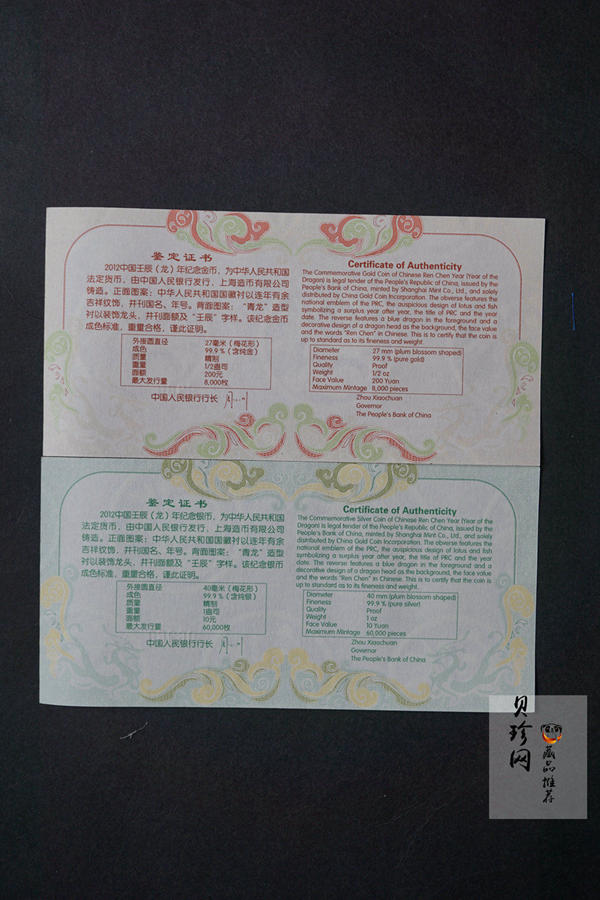 鉴定证书
2012中国壬辰（龙）年纪念金币，为中华人民共和国
法定货币，由中国人民银行发行，上海造币有限公司
铸造。正面图案：中华人民共和国国徽衬以连年有余
吉祥纹饰，并刊国名、年号。背面图案：“青龙”造型
衬以装饰龙头，并刊面额及“壬辰”字样。该纪念金币
成色标准，重量合格，谨此证明。
外接圆直径 27毫米（梅花形）
成色 99.9%（含纯金）
质量 精制
重量 1/2盎司
面额 200元
最大发行量 8,000枚
中国人民银行行长
Certificate of Authenticity
The Commemorative Gold Coin of Chinese Ren Chen Year (Year of the
Dragon) is legal tender of the People's Republic of China, issued by the
People's Bank of China, minted by Shanghai Mint Co., Ltd., and solely
distributed by China Gold Coin Incorporation. The obverse features the
national emblem of the PRC, the auspicious design of lotus and fish
symbolizing a surplus year after year, the title of PRC and the year
date. The reverse features a blue dragon in the foreground and a
decorative design of a dragon head as the background, the face value
and the words "Ren Chen" in Chinese. This is to certify that the coin is
up to standard as to its fineness and weight.
Diameter 27 mm (plum blossom shaped)
Fineness 99.9 % (pure gold)
Quality Proof
Weight 1/2 oz
Face Value 200 Yuan
Maximum Mintage 8,000 pieces
Zhou Xiaochuan
Governor
The People's Bank of China
鉴定证书
2012中国壬辰（龙）年纪念银币，为中华人民共和国
法定货币，由中国人民银行发行，上海造币有限公司
铸造。正面图案：中华人民共和国国徽衬以连年有余
吉祥纹饰，并刊国名、年号。背面图案：“青龙”造型
衬以装饰龙头，并刊面额及“壬辰”字样。该纪念银币
成色标准，重量合格，谨此证明。
外接圆直径 40毫米（梅花形）
成色 99.9%（含纯银）
质量 精制
重量 1盎司
面额 10元
最大发行量 60,000枚
中国人民银行行长
Certificate of Authenticity
The Commemorative Silver Coin of Chinese Ren Chen Year (Year of the
Dragon) is legal tender of the People's Republic of China, issued by the
People's Bank of China, minted by Shanghai Mint Co., Ltd., and solely
distributed by China Gold Coin Incorporation. The obverse features the
national emblem of the PRC, the auspicious design of lotus and fish
symbolizing a surplus year after year, the title of PRC and the year
date. The reverse features a blue dragon in the foreground and a
decorative design of a dragon head as the background, the face value
and the words "Ren Chen" in Chinese. This is to certify that the coin is
up to standard as to its fineness and weight.
Diameter 40 mm (plum blossom shaped)
Fineness 99.9 % (pure silver)
Quality Proof
Weight 1 oz
Face Value 10 Yuan
Maximum Mintage 60,000 pieces
Zhou Xiaochuan
Governor
The People's Bank of China
贝珍网
藏品推荐